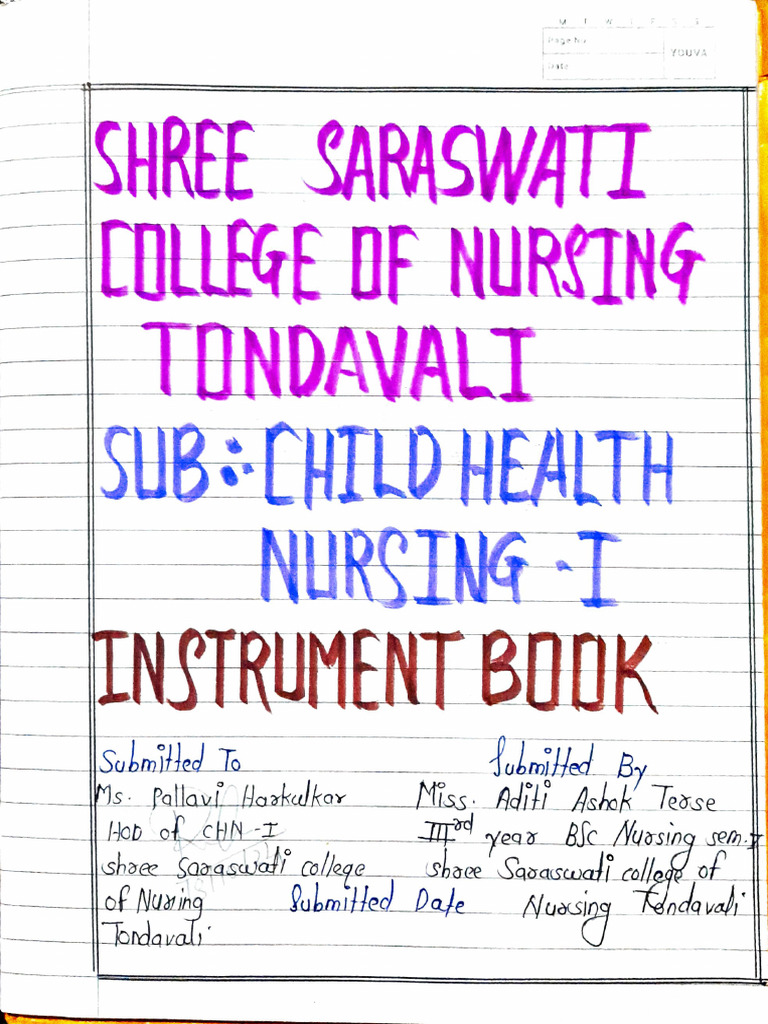 M T W T F S S
Page No.
YOUVA
Date
SHREE SARASWATI
COLLEGE OF NURSING
TONDAVALI
SUB:- CHILD HEALTH
NURSING - I
INSTRUMENT BOOK
Submitted To Submitted By
Ms. Pallavi Harkulkar Miss. Aditi Ashok Terse
HOD of CHN - I IIIrd year BSc Nursing sem.V
shree Saraswati college shree Saraswati college of
of Nursing Submitted Date Nursing Tondavali
Tondavali